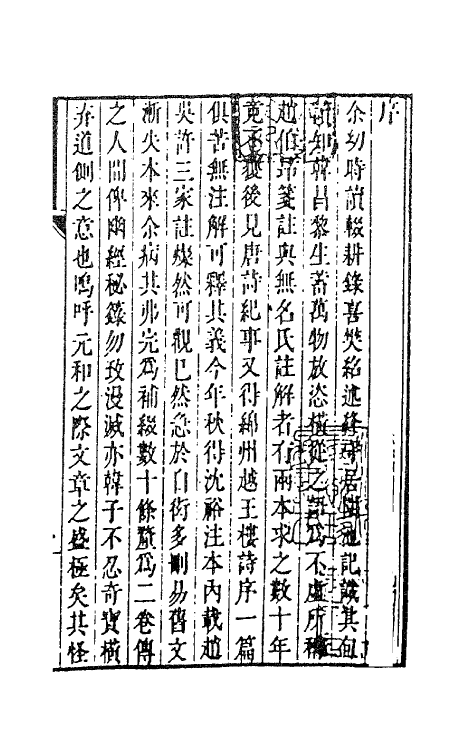 序
余幼時讀輟耕錄喜樊紹述絳守居園池記識其句
讀知韓昌黎生蓄萬物放恣橫從之語爲不虛所稱
趙伯昂箋註與無名氏註解者有兩本求之數十年
竟不獲後見唐詩紀事又得綿州越王樓詩序一篇
俱苦無注解可釋其義今年秋得沈裕注本內載趙
吳許三家註燦然可觀已然急於自衒多刪易舊文
漸失本來余病其弗完爲補綴數十條釐爲二卷傳
之人間俾幽經秘籙勿致漫滅亦韓子不忍奇寶橫
弃道側之意也嗚呼元和之際文章之盛極矣其怪